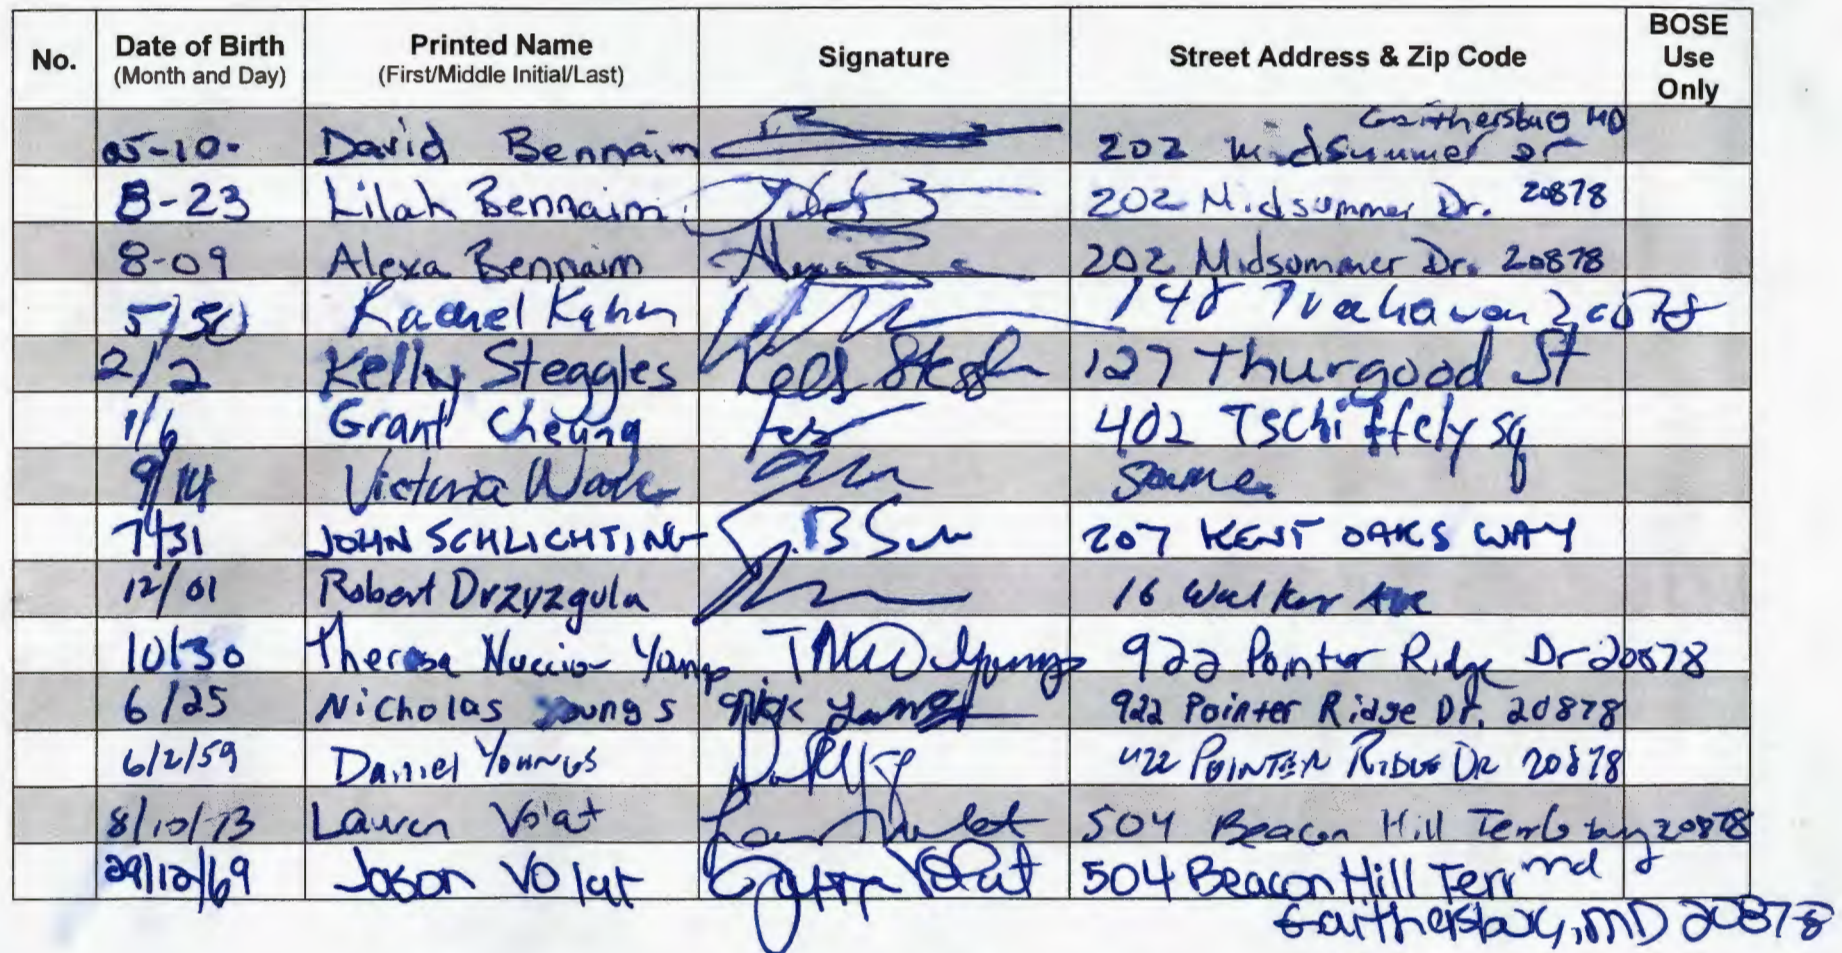 No. Date of Birth (Month and Day) Printed Name (First/Middle Initial/Last) Signature Street Address & Zip Code BOSE Use Only
05-10. David Bennaim 202 Midsummer Dr Gaithersburg MD
8-23 Lilah Bennaim 202 Midsummer Dr. 20878
8-09 Alexa Bennaim Alexa 202 Midsommer Dr. 20878
5/30 Rachel Kahn 148
2/2 Kelly Steggles 127 Thurgood St
1/6 Grant Cheung 402 Tschiffely Sq
9/14 Victoria Same
7/31 JOHN SCHLICHTING 207 KENT OAKS WAY
12/01 Robert Drzyzgula 16 Walker Ave
10/30 Theresa 922 Pointer Ridge Dr 20878
6/25 Nicholas Youngs Nick Youngs 922 Pointer Ridge Dr. 20878
6/2/59 Daniel Youngs 922 Pointer Ridge Dr 20878
8/10/73 Lauren Volat 504 Beacon Hill Terr 20878
29/12/69 Jason Volat Volat 504 Beacon Hill Terr
Gaithersburg, MD 20878